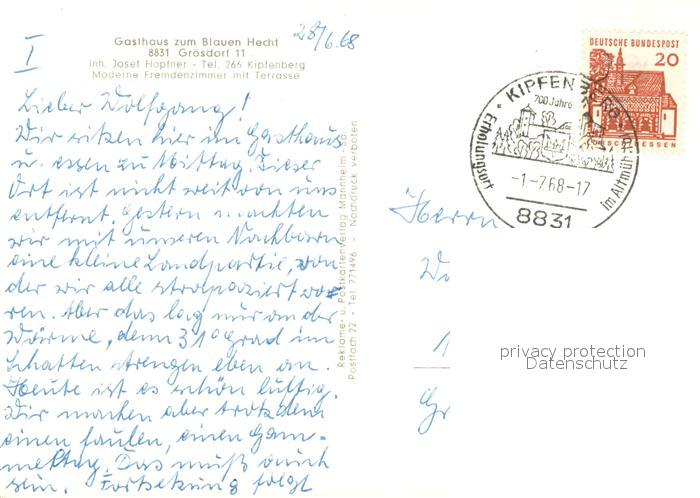 I
28/6.68
Gasthaus zum Blauen Hecht
8831 Grösdorf 11
Inh. Josef Hopfner - Tel. 266 Kipfenberg
Moderne Fremdenzimmer mit Terrasse
Lieber Wolfgang!
Wir sitzen hier im Gasthaus
u. essen zu Mittag. Dieser
Ort ist nicht weit von uns
entfernt. Gestern machten
wir mit unseren Nachbarn
eine kleine Landpartie, von
der wir alle strapaziert wa-
ren. Aber das lag nur an der
Wärme, denn 31° grad im
Schatten strengen eben an.
Heute ist es schön luftig.
Wir machen aber trotzdem
einen faulen, einen Gam-
meltag. Das muß auch
sein. Fortsetzung folgt
Reklame- u. Postkartenverlag Mannheim
Postfach 22 - Tel. 771496 - Nachdruck verboten
DEUTSCHE BUNDESPOST
20
HESSEN
KIPFEN
700 Jahre
Erholungsort
im Altmüh
-1.-7.68-17
8831
Herrn
Wo
Gr
privacy protection
Datenschutz